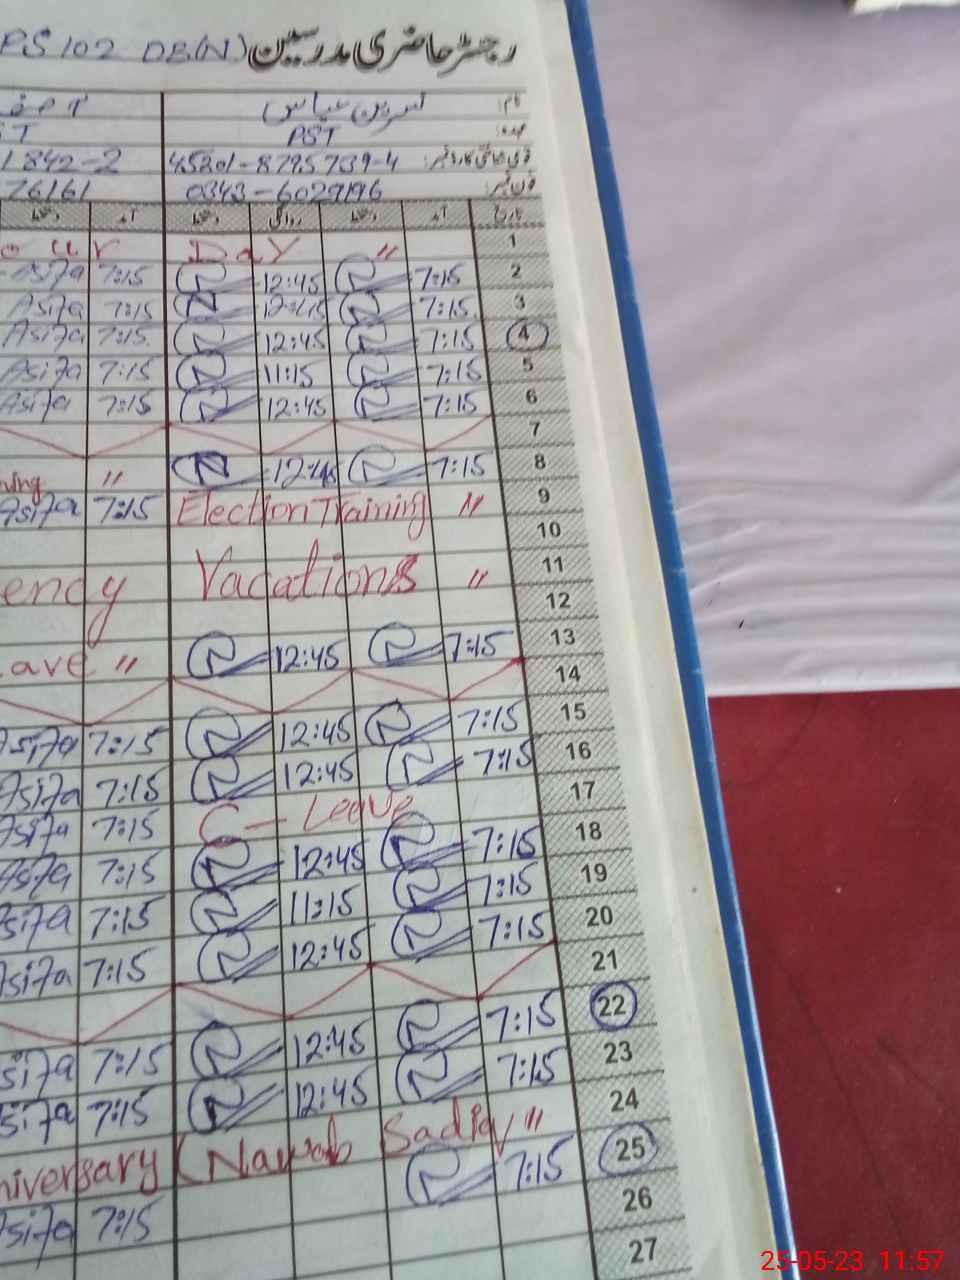 PS 102 DB(N) رجسٹر حاضری مدرسین
نام: نسرین عباس
عہدہ: PST
قومی شناختی کارڈ نمبر: 45201-8795739-4 1842-2
فون نمبر: 0343-6029196 76161
تاریخ آمد دستخط روانگی دستخط آمد دستخط
our Day " 1
Asifa 7:15 12:45 7:15 2
Asifa 7:15 12:45 7:15 3
Asifa 7:15 12:45 7:15 4
Asifa 7:15 11:15 7:15 5
Asifa 7:15 12:45 7:15 6
7
ning " 12:45 7:15 8
Asifa 7:15 Election Training " 9
10
ency Vacations " 11
12
eave " 12:45 7:15 13
14
Asifa 7:15 12:45 7:15 15
Asifa 7:15 12:45 7:15 16
Asifa 7:15 C-Leave 17
Asifa 7:15 12:45 7:15 18
Asifa 7:15 11:15 7:15 19
Asifa 7:15 12:45 7:15 20
21
Asifa 7:15 12:45 7:15 22
Asifa 7:15 12:45 7:15 23
niversary (Nawab Sadiq " 24
Asifa 7:15 7:15 25
26
27
25-05-23 11:57